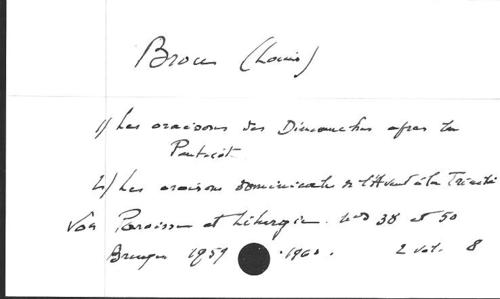 Brou (Louis)
1/ Les oraisons des Dimanches après la
Pentecôt.
2/ Les oraisons dominicales de l'Avent à la Trinité
Voir Paroisse et Liturgie. nos 38 et 50
Bruges 1959 - 1960. 2 vol. 8